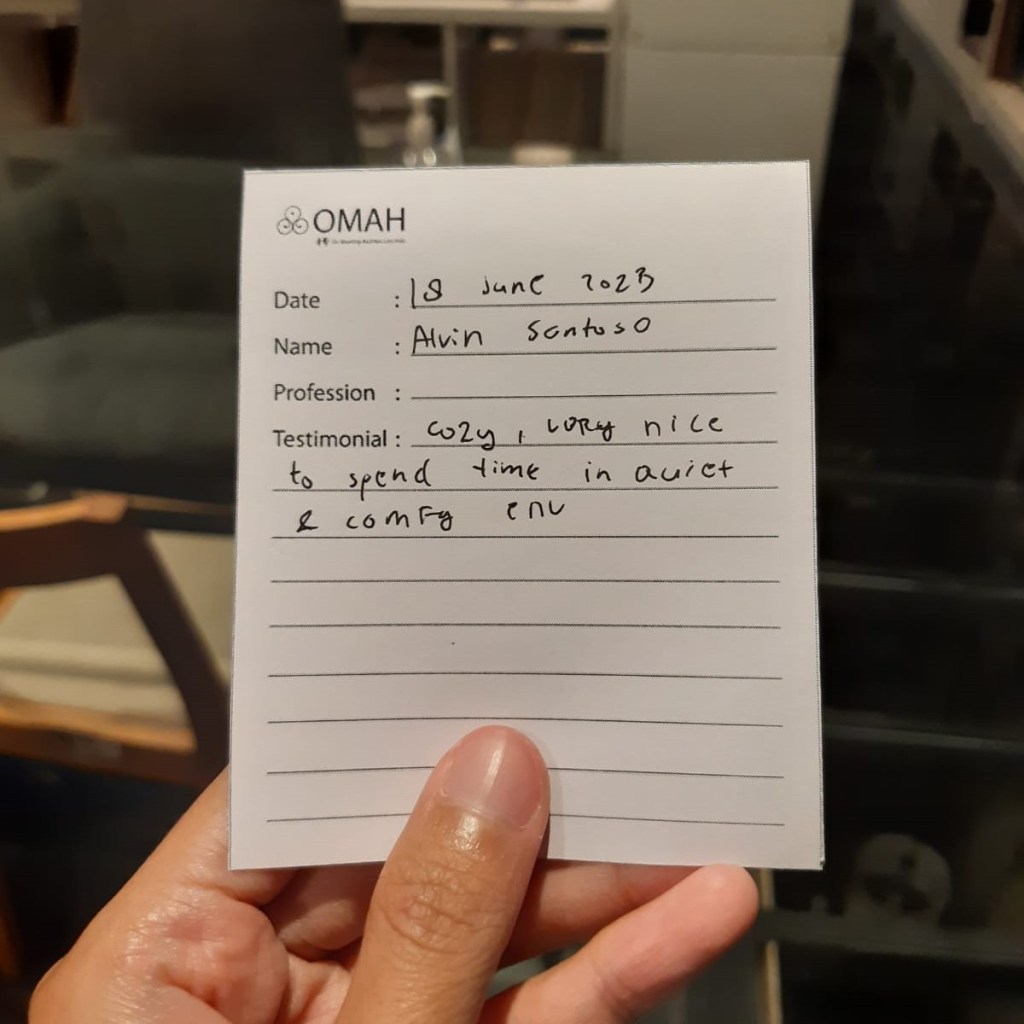 OMAH
Date : 18 June 2023
Name : Alvin Santoso
Profession :
Testimonial : cozy, very nice
to spend time in quiet
& comfy env